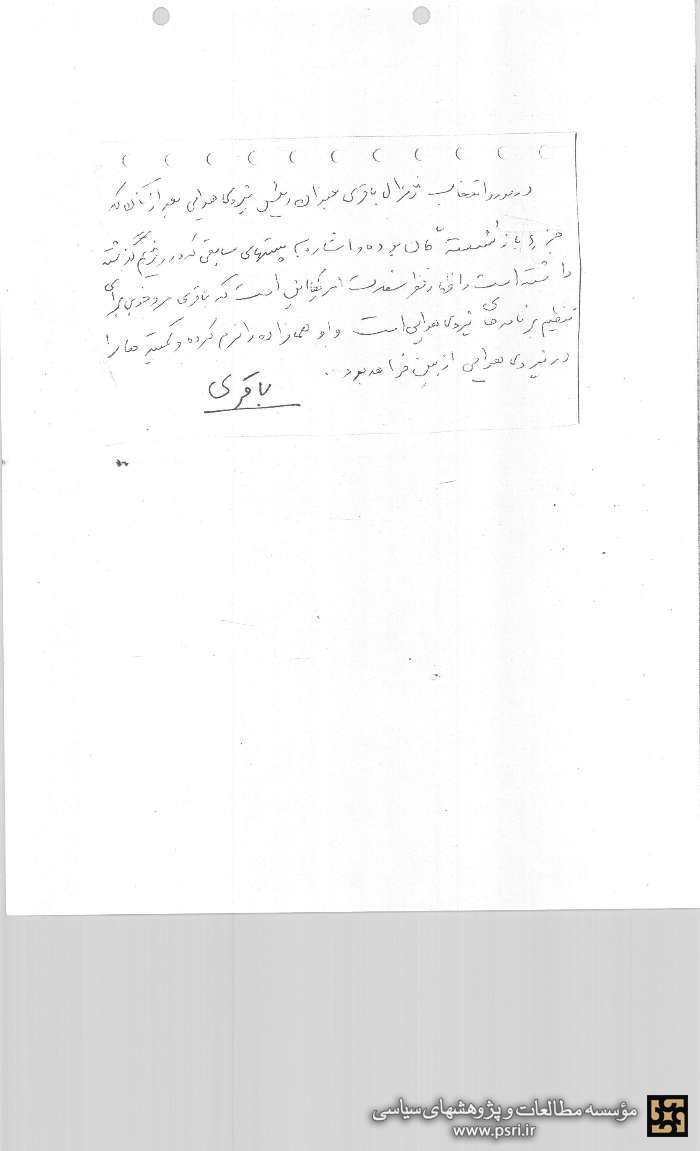 در مورد انتخاب ژنرال باقری بعنوان رئیس نیروی هوایی بعد از که
جزء بازنشسته گان بوده و اشاره به پستهای سابقی که در رژیم گذشته
داشته است اظهار نظر سفارت امریکا این است که باقری مرد خوبی برای
تنظیم برنامه های نیروی هوایی است و او همازاده را نرم کرده و کمیته ها را
در نیروی هوایی از بین خواهد برد.
باقری
مؤسسه مطالعات و پژوهشهای سیاسی
www.psri.ir